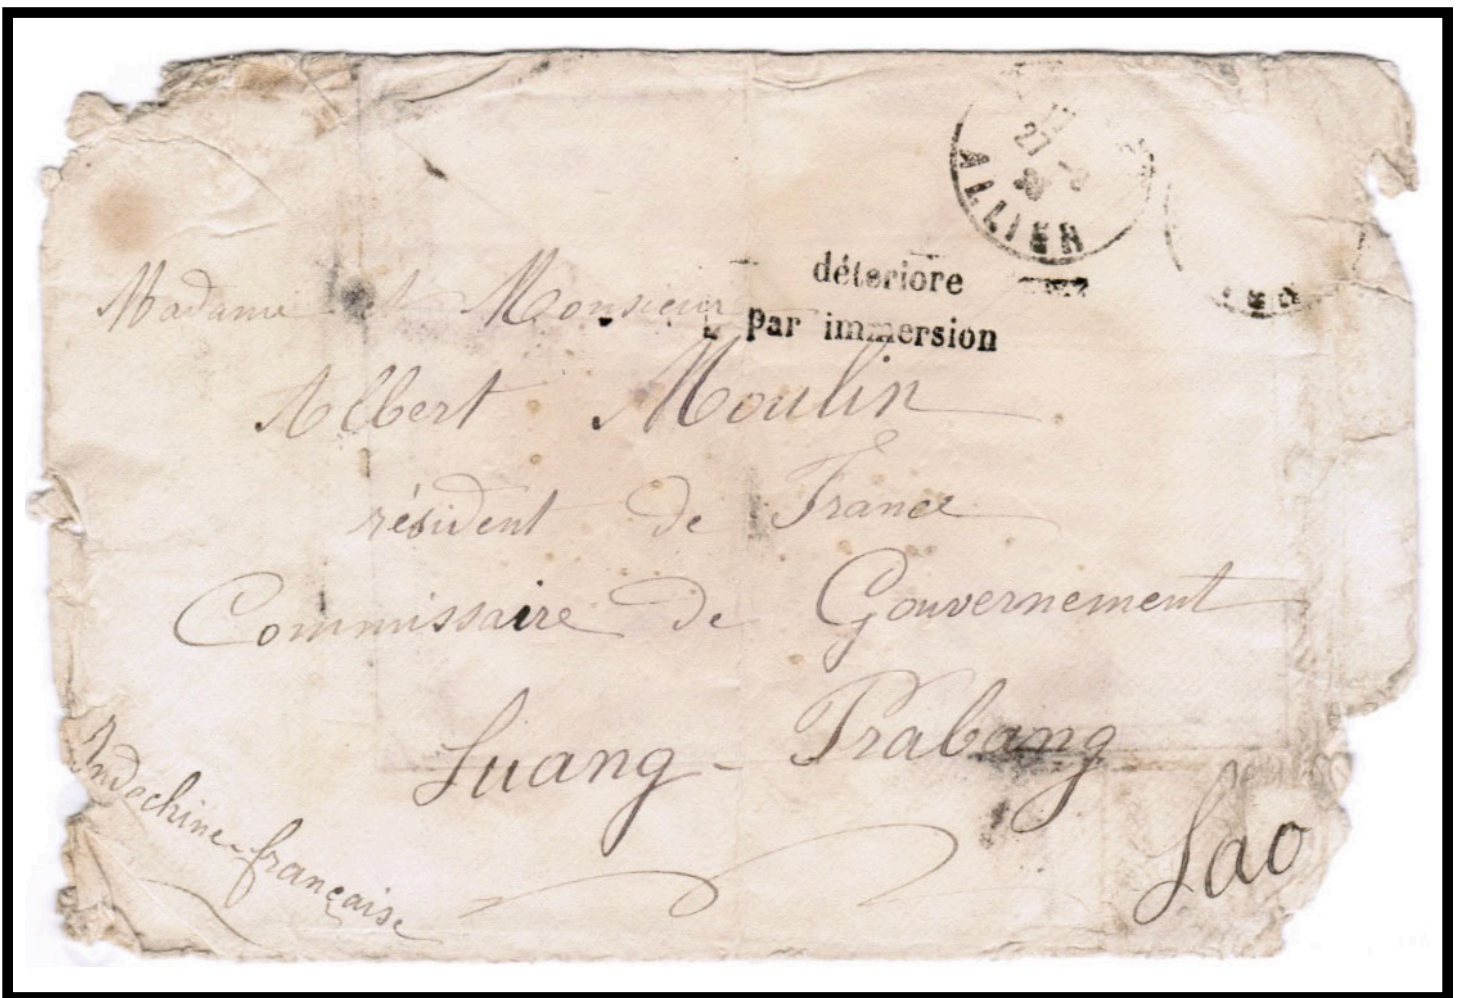 27
ALLIER
déteriore
par immersion
Madame et Monsieur
Albert Moulin
résident de France
Commissaire de Gouvernement
Luang-Prabang
Lao
Indochine-française